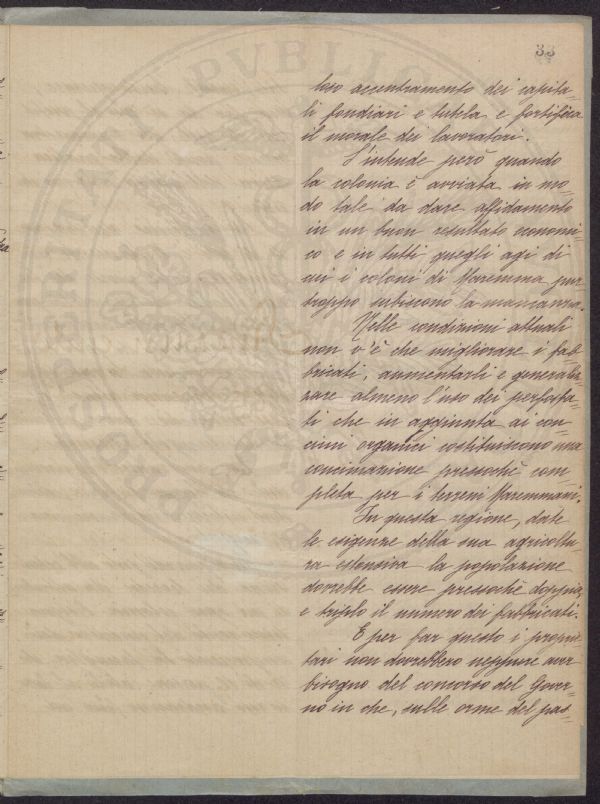 33
loso accentramento dei capita=
li fondiari e tutela e fortifica
il morale dei lavoratori.
S'intende però quando
la colonia è avviata in mo=
do tale da dare affidamento
in un buon resultato economi=
co e in tutti quegli agi di
cui i coloni di Maremma pur=
troppo subiscono la mancanza.
Nelle condizioni attuali
non v'è che migliorare i fab=
bricati, aumentarli e generaliz=
zare almeno l'uso dei perfosfa=
ti che in aggiunta ai con=
cimi organici costituiscono una
concimazione pressochè com=
pleta per i terreni Maremmani.
In questa regione, date
le esigenze della sua agricoltu=
ra estensiva la popolazione
dovrebbe essere pressochè doppia,
e triplo il numero dei fabbricati.
E per far questo i proprie=
tari non dovrebbero neppure aver
bisogno del concorso del Gover=
no in che, sulle orme del pas=
PROSPERITATI PVBLICAE